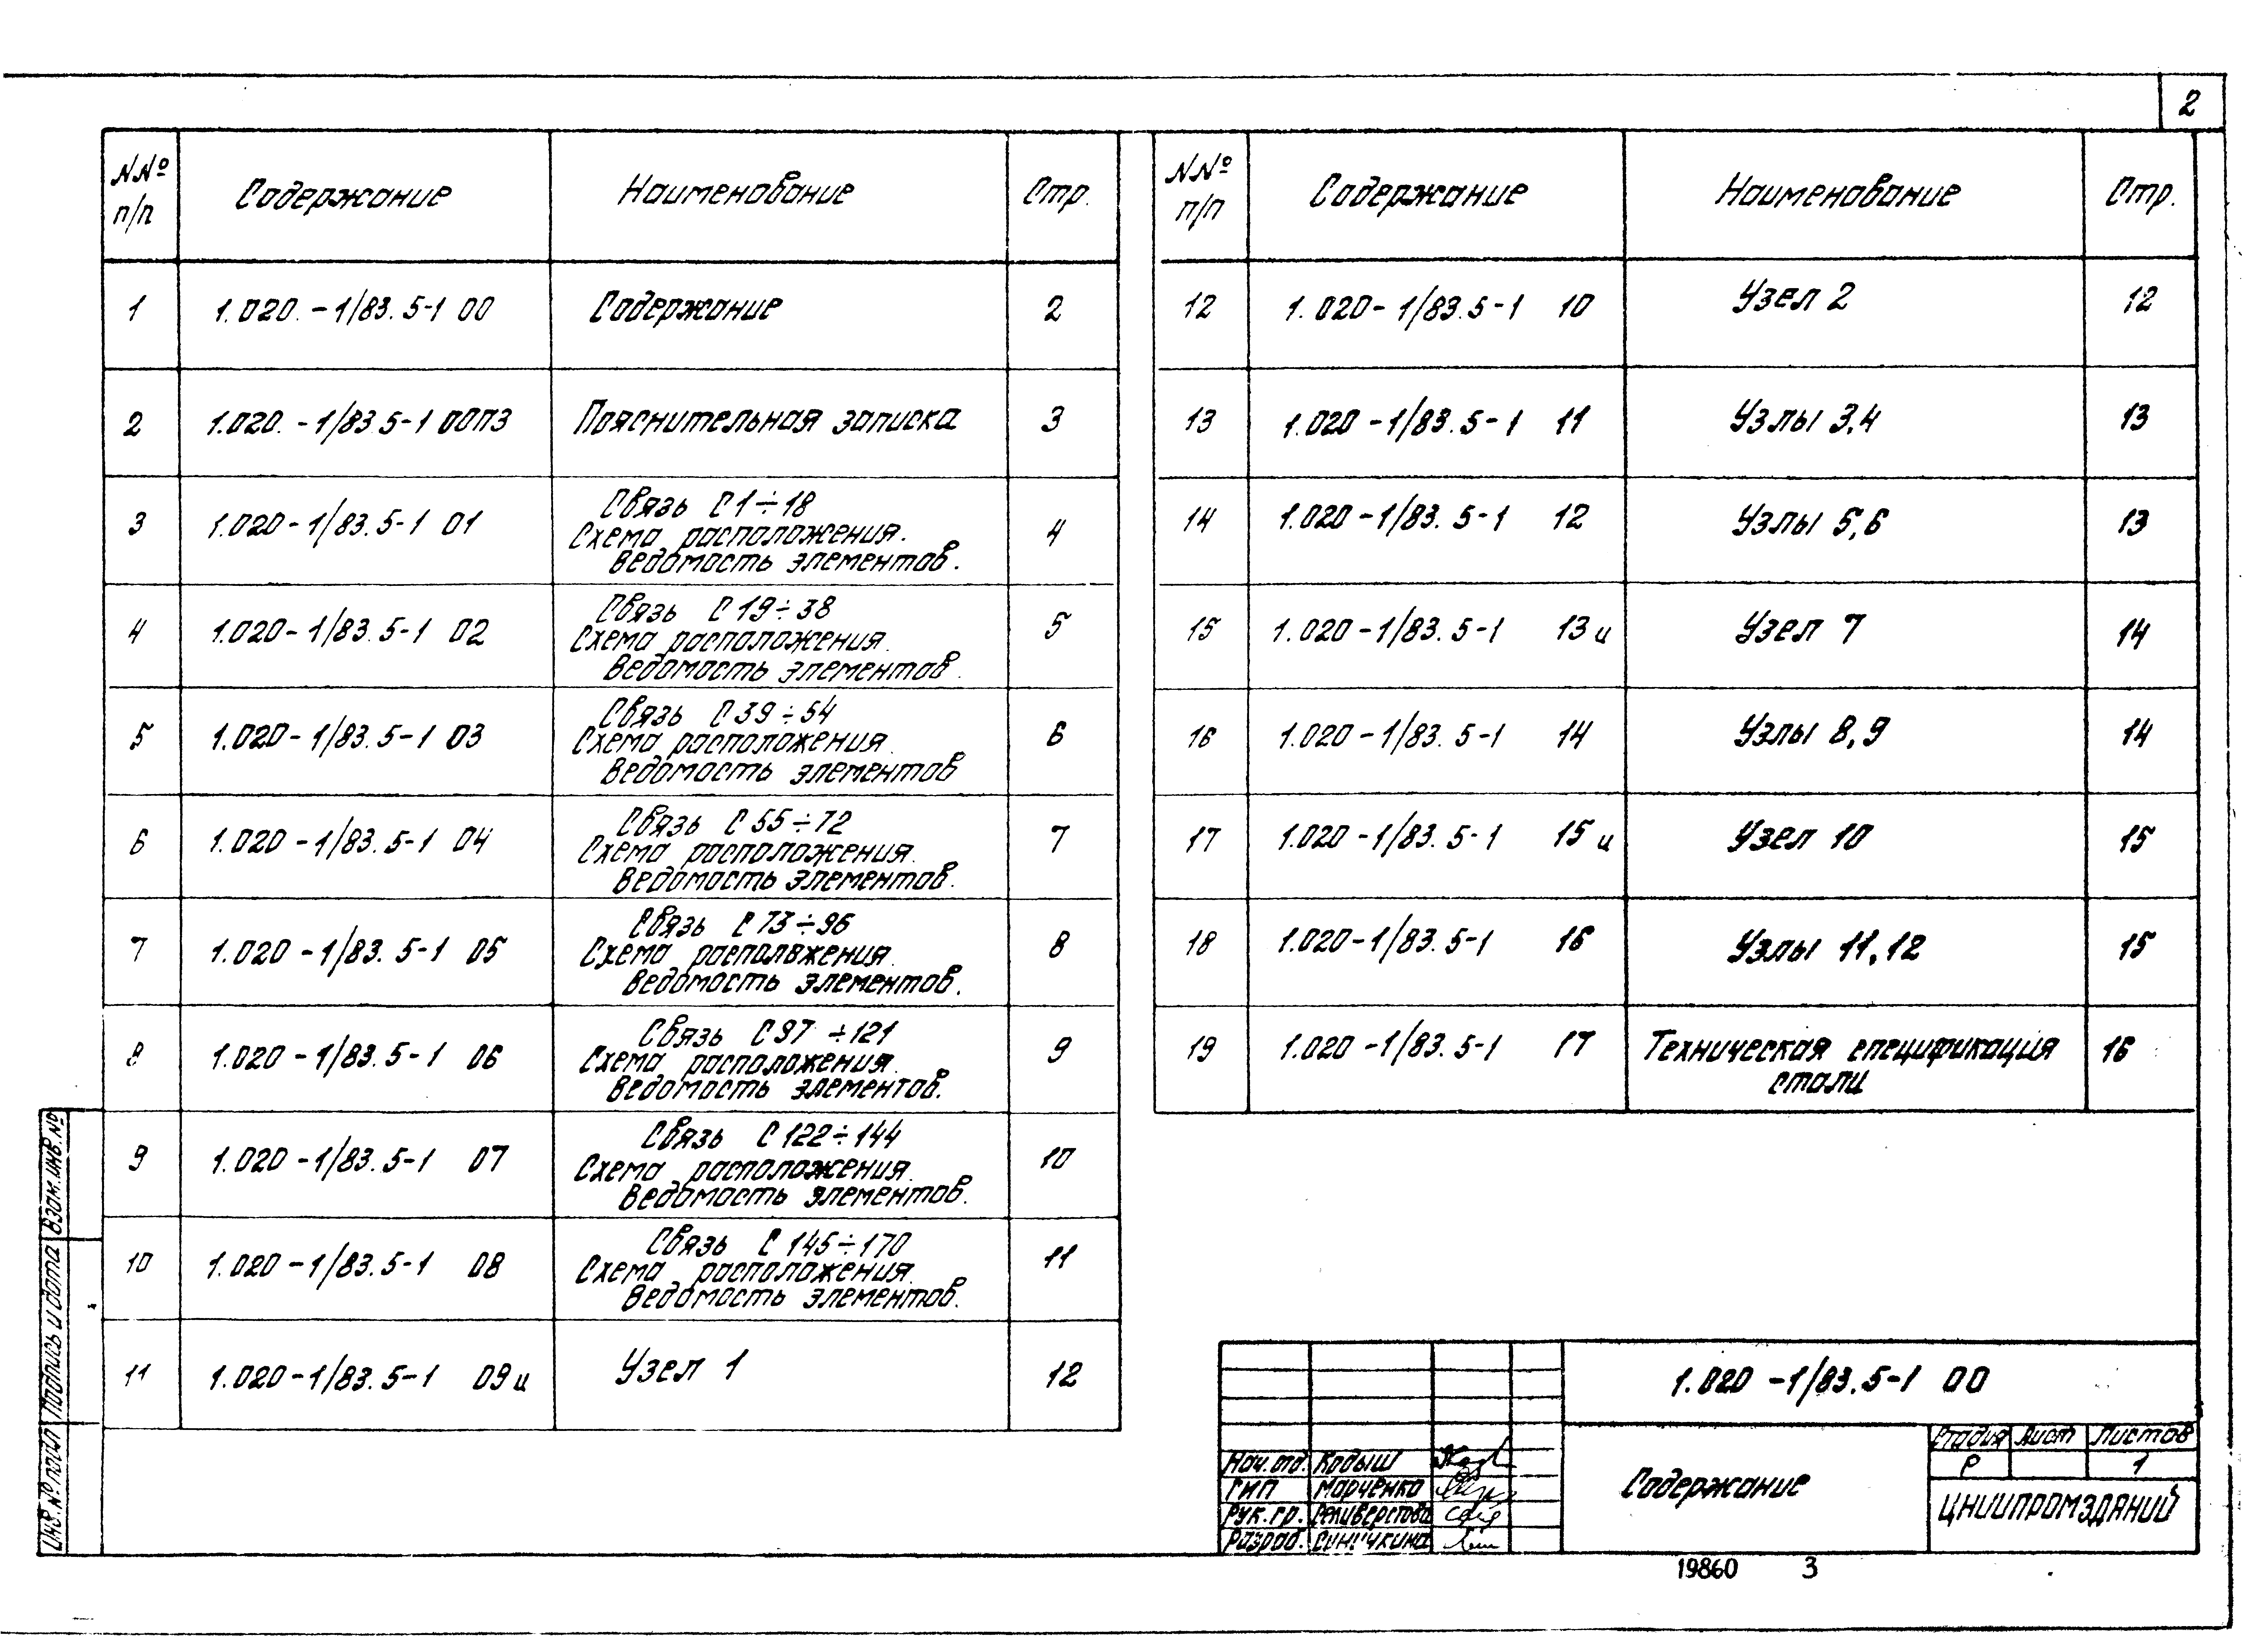 2
NNº п/п Содержание Наименование Стр.
1 1.020.-1/83.5-1 00 Содержание 2
2 1.020.-1/83.5-1 00ПЗ Пояснительная записка 3
3 1.020-1/83.5-1 01 Связь С1÷18
Схема расположения.
Ведомость элементов. 4
4 1.020-1/83.5-1 02 Связь С19÷38
Схема расположения.
Ведомость элементов. 5
5 1.020-1/83.5-1 03 Связь С39÷54
Схема расположения.
Ведомость элементов 6
6 1.020-1/83.5-1 04 Связь С55÷72
Схема расположения.
Ведомость элементов. 7
7 1.020-1/83.5-1 05 Связь С73÷96
Схема расположения.
Ведомость элементов. 8
8 1.020-1/83.5-1 06 Связь С97÷121
Схема расположения.
Ведомость элементов. 9
9 1.020-1/83.5-1 07 Связь С122÷144
Схема расположения.
Ведомость элементов. 10
10 1.020-1/83.5-1 08 Связь С145÷170
Схема расположения.
Ведомость элементов. 11
11 1.020-1/83.5-1 09и Узел 1 12
NNº п/п Содержание Наименование Стр.
12 1.020-1/83.5-1 10 Узел 2 12
13 1.020-1/83.5-1 11 Узлы 3,4 13
14 1.020-1/83.5-1 12 Узлы 5,6 13
15 1.020-1/83.5-1 13и Узел 7 14
16 1.020-1/83.5-1 14 Узлы 8,9 14
17 1.020-1/83.5-1 15и Узел 10 15
18 1.020-1/83.5-1 16 Узлы 11,12 15
19 1.020-1/83.5-1 17 Техническая спецификация
стали 16
Инв.Nº подл Подпись и дата Взам.инв.Nº
1.020-1/83.5-1 00
Нач.отд. Кодыш
ГИП Марченко
Рук.гр. Селиверстова
Разраб.
Содержание
Стадия Лист Листов
Р 1
ЦНИИПРОМЗДАНИЙ
19860 3